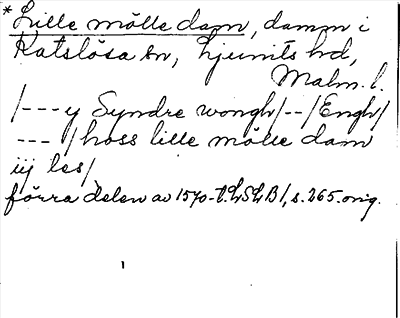 * Lille mölle dam, damm i
Katslösa sn, Ljunits hd,
Malm. l.
/---y Syndre wongh/--/Engh/
--- /hoss lille mölle dam
iij les/
förra delen av 1570-t. LSLB 1, s. 265. orig.